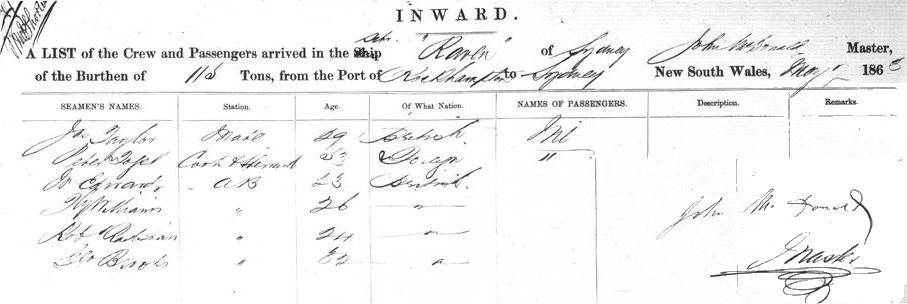 INWARD.
A LIST of the Crew and Passengers arrived in the Ship "Raven" of Sydney John McDonald Master,
of the Burthen of 118 Tons, from the Port of Rockhampton to Sydney New South Wales, May 186
SEAMEN'S NAMES. Station. Age. Of What Nation. NAMES OF PASSENGERS. Description. Remarks.
Jas Taylor Mate 29 British Nil
Peter Cook & Steward 52 Foreign "
Jo Edwards AB 23 British
Williams " 26 "
Rob " 24 "
Geo Brooks " 22 "
John McDonald
Master